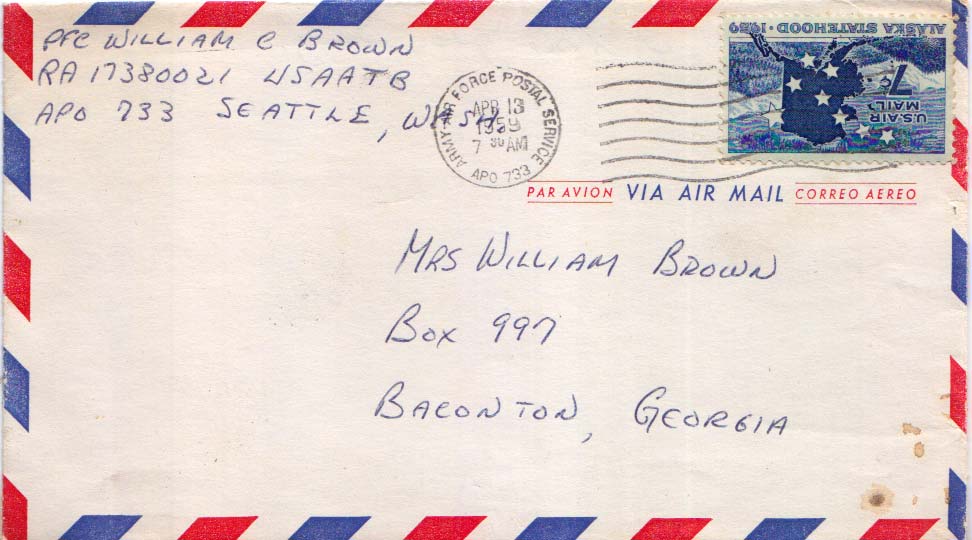 PFC WILLIAM C BROWN
RA 17380021 USAATB
APO 733 SEATTLE, WASH
ARMY-AIR FORCE POSTAL SERVICE
APR 13
1959
7 30 AM
APO 733
ALASKA STATEHOOD · 1959
7¢
U.S. AIR MAIL
PAR AVION VIA AIR MAIL CORREO AEREO
MRS WILLIAM BROWN
BOX 997
BACONTON, GEORGIA